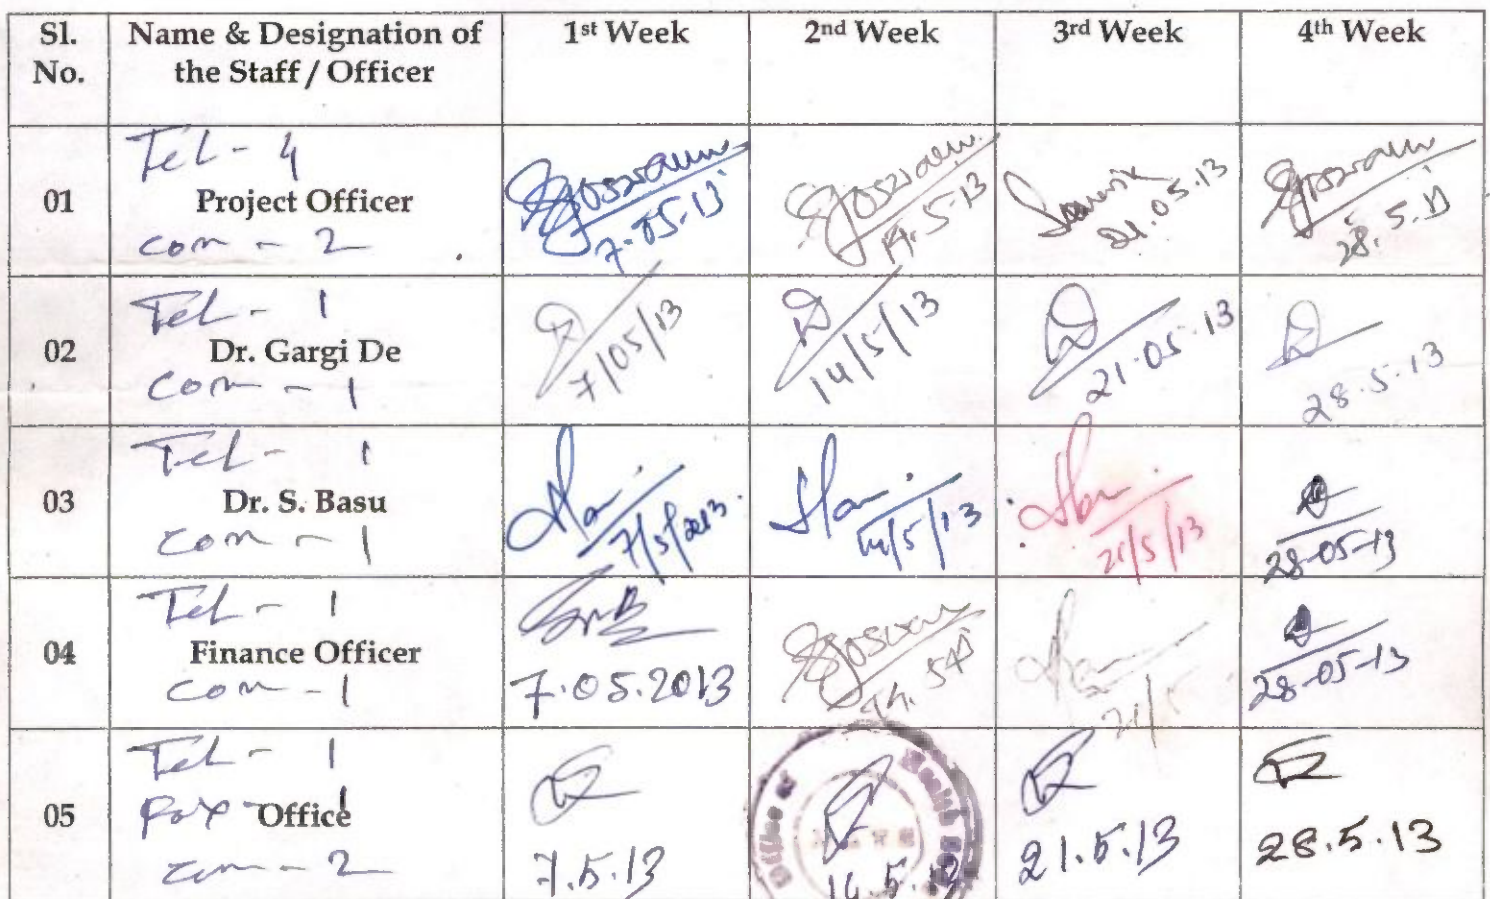 Sl. No.
Name & Designation of the Staff / Officer
1st Week
2nd Week
3rd Week
4th Week
01
Tel - 4
Project Officer
com - 2
Goswami
7.05.13
Goswami
14.5.13
21.05.13
Goswami
28.5.13
02
Tel - 1
Dr. Gargi De
com - 1
7/05/13
14/5/13
21.05.13
28.5.13
03
Tel - 1
Dr. S. Basu
com - 1
7/5/2013
14/5/13
21/5/13
28-05-13
04
Tel - 1
Finance Officer
com - 1
7.05.2013
Goswami
28-05-13
05
Tel - 1
Fax - 1
Office
com - 2
7.5.13
Office of
14.5.13
21.5.13
28.5.13